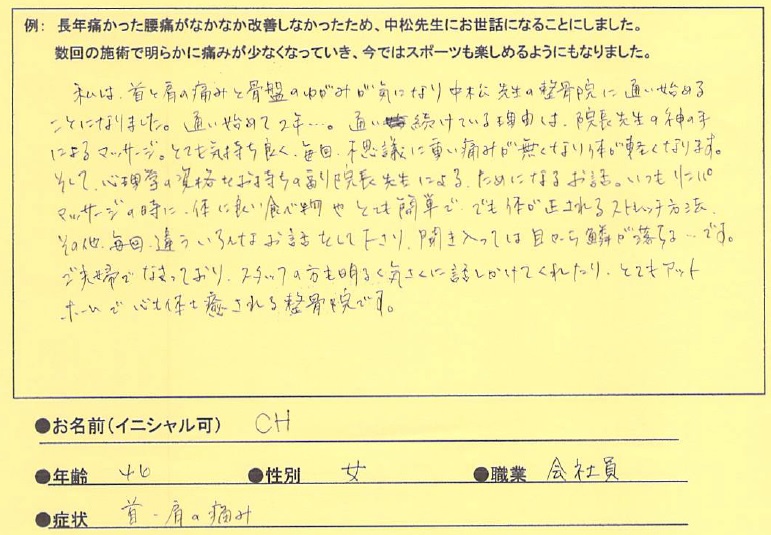 例： 長年痛かった腰痛がなかなか改善しなかったため、中松先生にお世話になることにしました。
数回の施術で明らかに痛みが少なくなっていき、今ではスポーツも楽しめるようにもなりました。
私は、首と肩の痛みと骨盤のゆがみが気になり中松先生の整骨院に通い始める
ことになりました。通い始めて2年…。通い続けている理由は、院長先生の神の手
によるマッサージ。とても気持ち良く、毎回、不思議に重い痛みが無くなり体が軽くなります。
そして、心理学の資格をお持ちの副院長先生による、ためになるお話。いつもリンパ
マッサージの時に、体に良い食べ物やとても簡単で、でも体が正されるストレッチ方法、
その他、毎回、違ういろんなお話をして下さり、聞き入っては目から鱗が落ちる…です。
ご夫婦でなさっており、スタッフの方も明るく気さくに話しかけてくれたり、とてもアット
ホームで心も体も癒される整骨院です。
●お名前（イニシャル可） CH
●年齢 46 ●性別 女 ●職業 会社員
●症状 首・肩の痛み